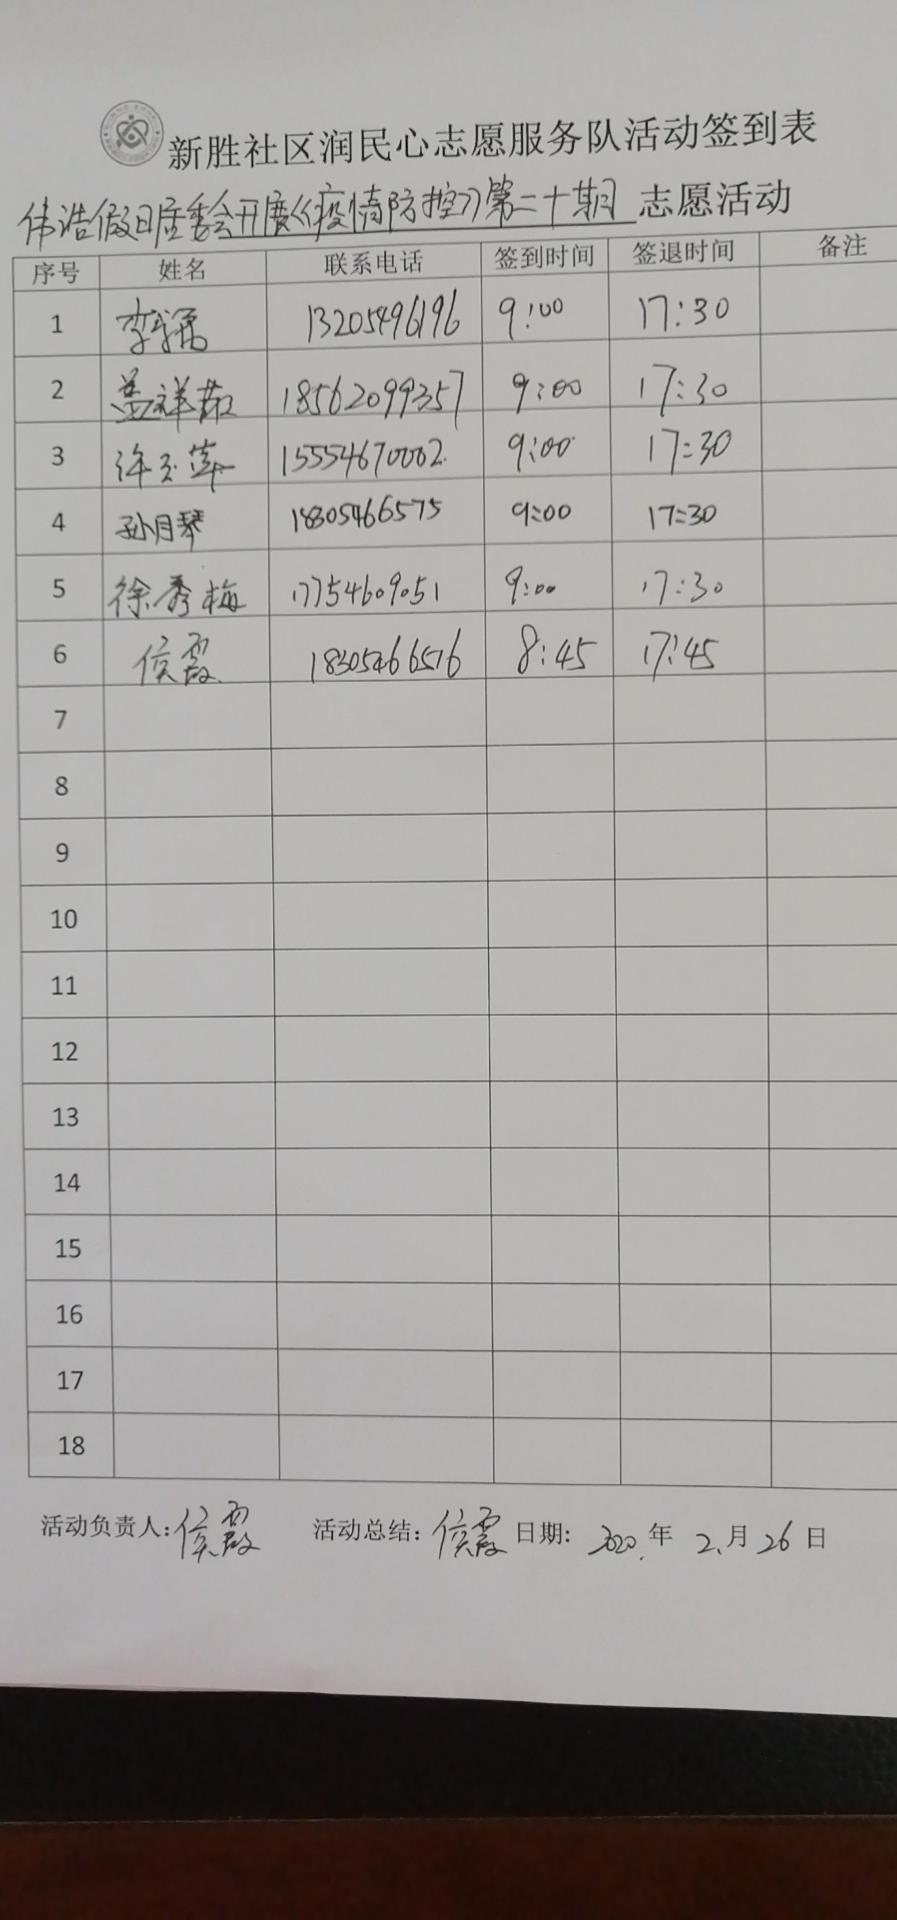 新胜社区润民心志愿服务队活动签到表
伟浩假日居委会开展《疫情防控》第二十期 志愿活动
序号 姓名 联系电话 签到时间 签退时间 备注
1 李 13205496196 9:00 17:30
2 盖祥茹 18562099357 9:00 17:30
3 许玉萍 15554670002 9:00 17:30
4 孙月琴 18305466575 9:00 17:30
5 徐秀梅 17754609051 9:00 17:30
6 侯霞 18305466516 8:45 17:45
7
8
9
10
11
12
13
14
15
16
17
18
活动负责人: 侯霞 活动总结: 侯霞 日期: 2020年 2月26日